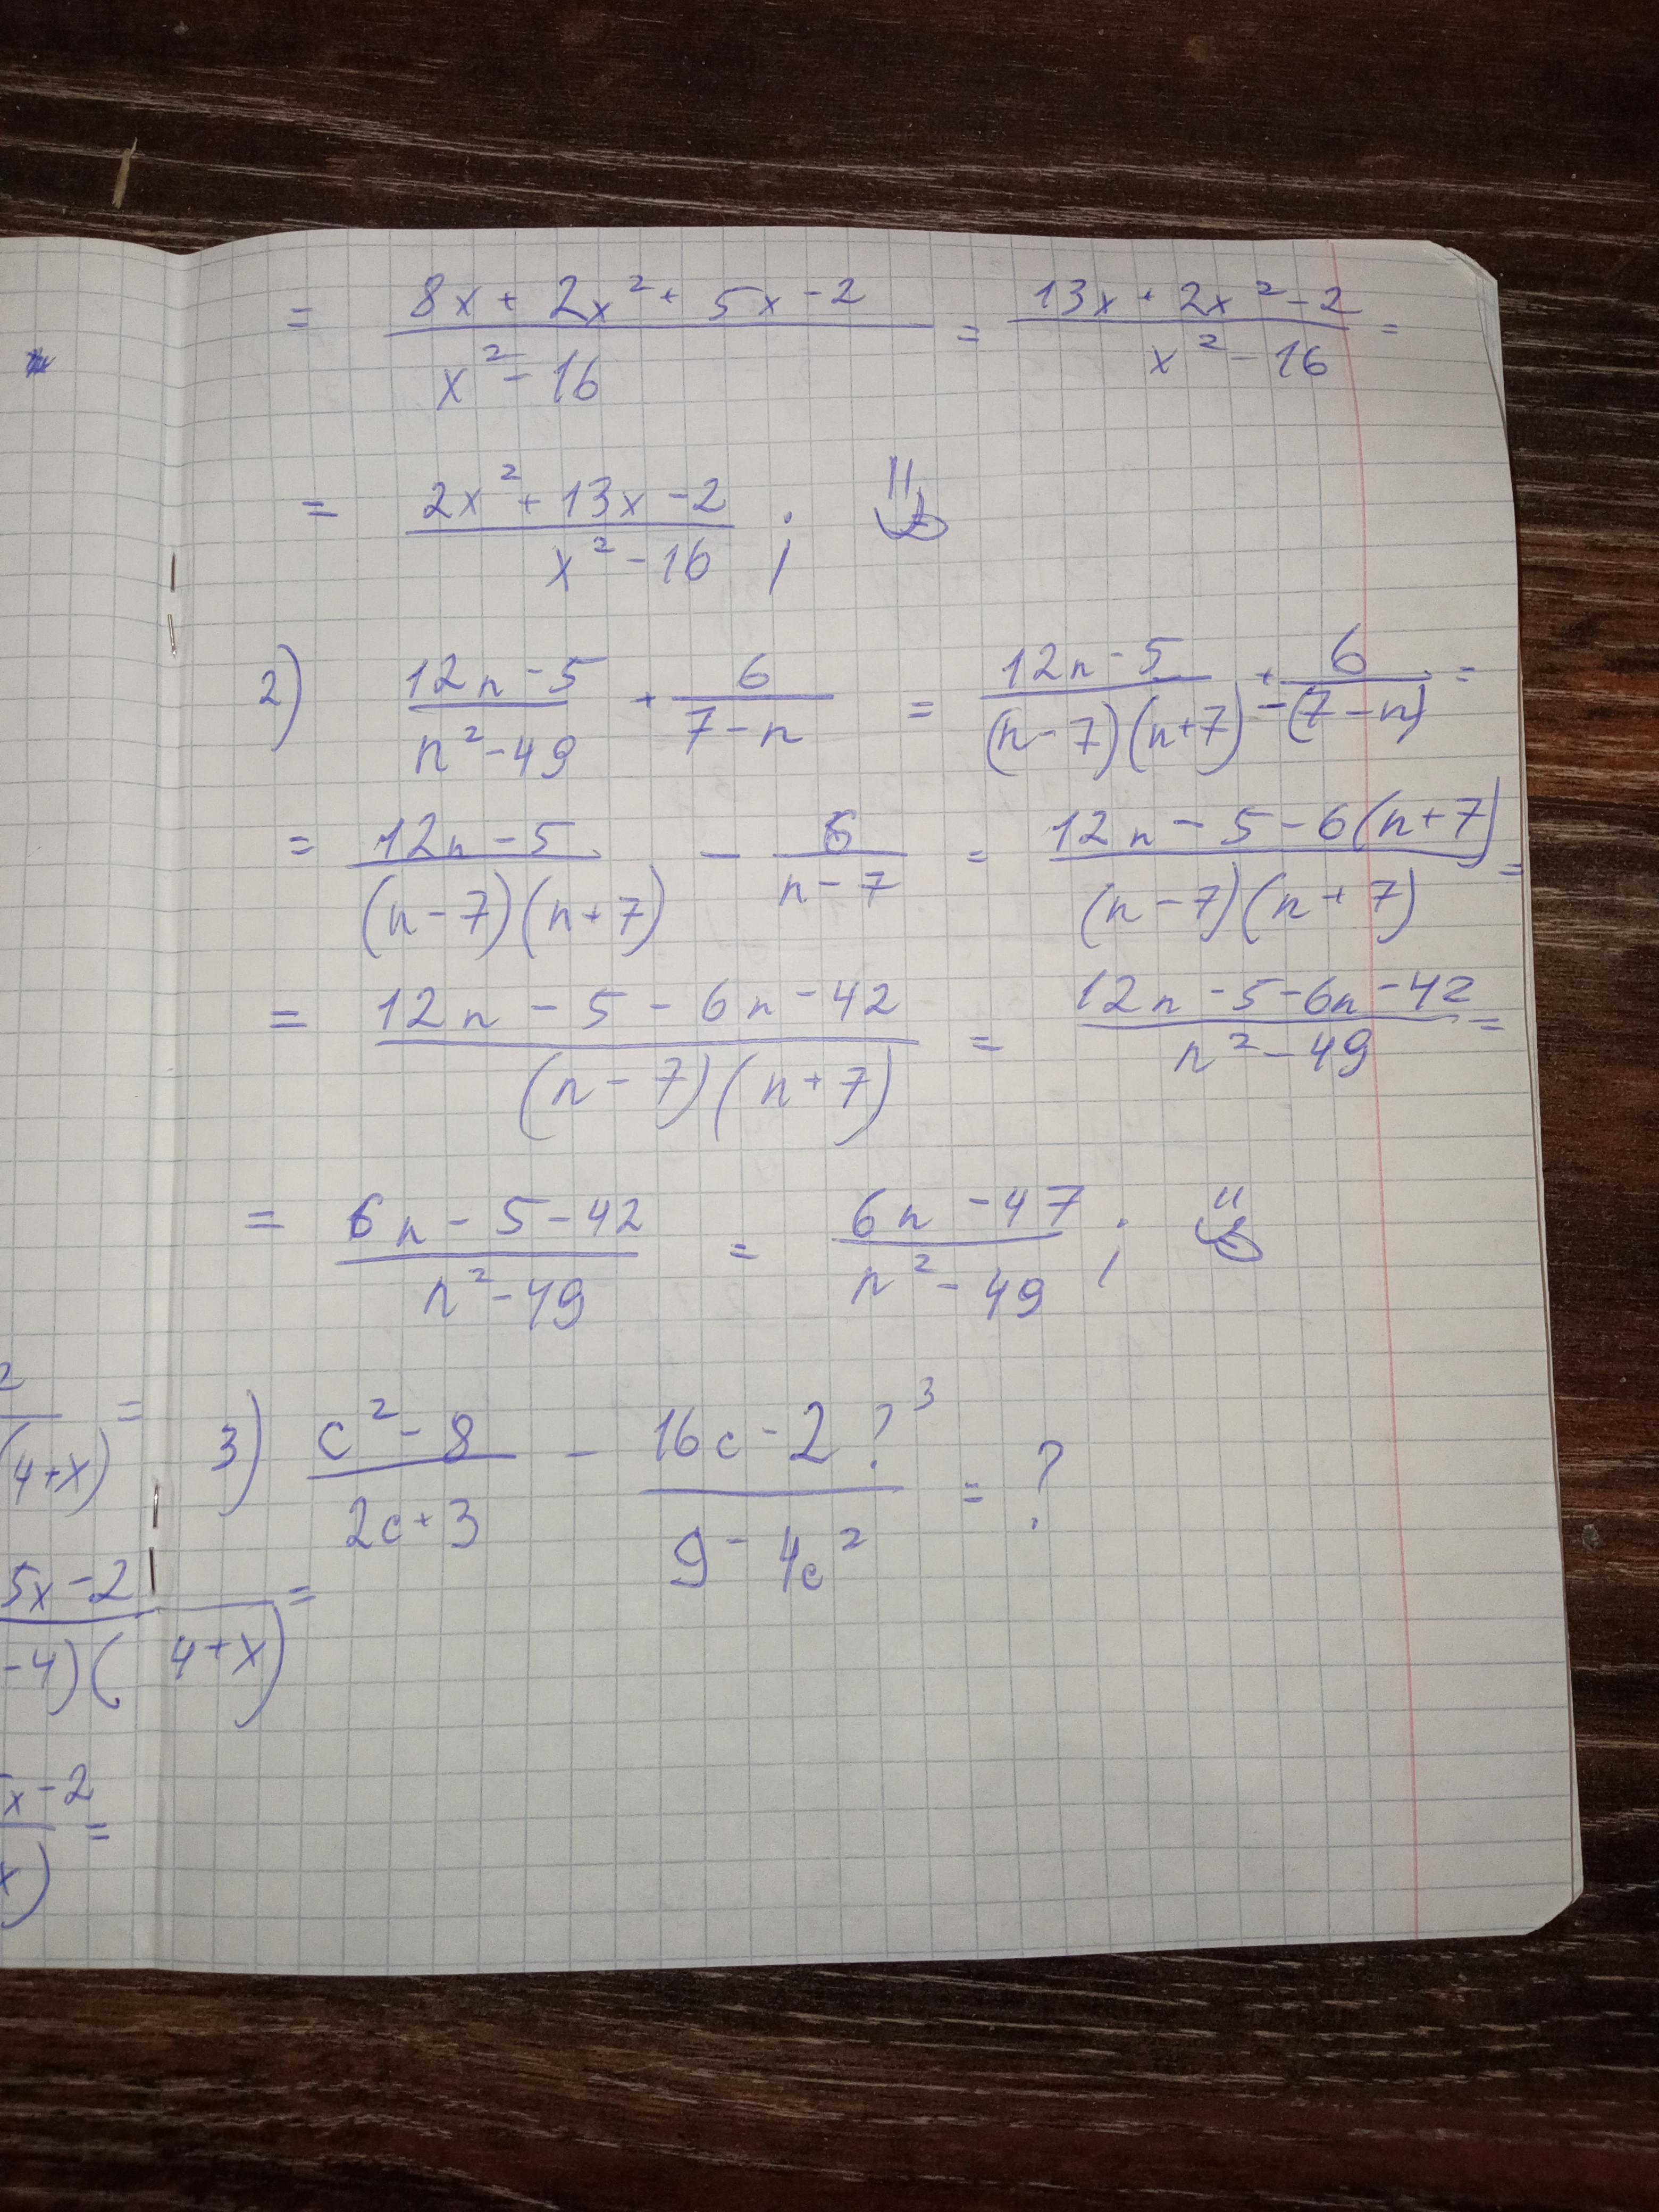 = (8x + 2x² + 5x - 2)/(x² - 16) = (13x + 2x² - 2)/(x² - 16) =
= (2x² + 13x - 2)/(x² - 16) ;
2) (12n - 5)/(n² - 49) + 6/(7 - n) = (12n - 5)/((n - 7)(n + 7)) + 6/(-(7 - n)) =
= (12n - 5)/((n - 7)(n + 7)) - 6/(n - 7) = (12n - 5 - 6(n + 7))/((n - 7)(n + 7)) =
= (12n - 5 - 6n - 42)/((n - 7)(n + 7)) = (12n - 5 - 6n - 42)/(n² - 49) =
= (6n - 5 - 42)/(n² - 49) = (6n - 47)/(n² - 49) ;
3) (c² - 8)/(2c + 3) - (16c - 2?³)/(9 - 4c²) = ?
2
(4+x) =
5x - 2
-4)( 4+x) =
x - 2 =
x)